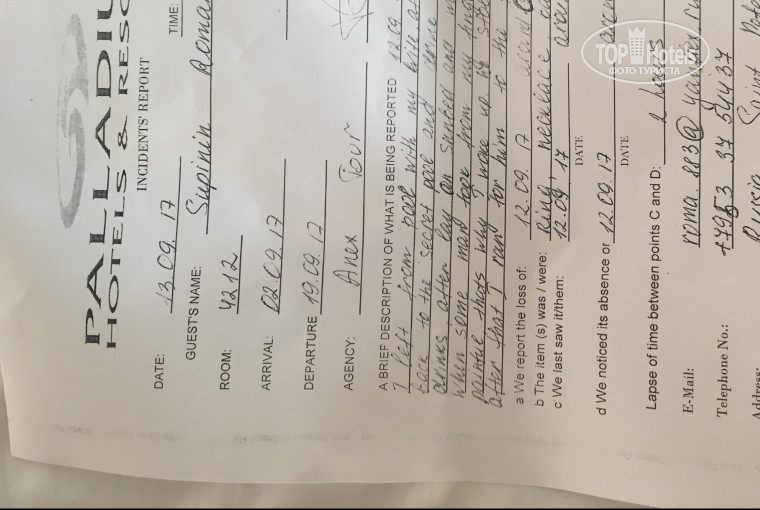 PALLADIU
HOTELS & RESO
INCIDENTS' REPORT
DATE: 13.09.17 TIME:
GUEST'S NAME: Supinin Roma
ROOM: 4212
ARRIVAL: 02.09.17
DEPARTURE 19.09.17
AGENCY: Anex Tour
A BRIEF DESCRIPTION OF WHAT IS BEING REPORTED 12.09
I left from pool with my wife
back to the secret pool and
drinks after lay on sunbed and
when some man took from my
painfue thats why I woke up he
after that I rang for him to the
a We report the loss of: 12.09.17 around
b The item (s) was / were: Ring, necklace
c We last saw it/them: 12.09.17
DATE
d We noticed its absence or 12.09.17
DATE
Lapse of time between points C and D: 2 hours
E-Mail: roma.883@
Telephone No.: +7953 37 54437
Address: Russia Saint
TOP Hotels
ФОТО ТУРИСТА